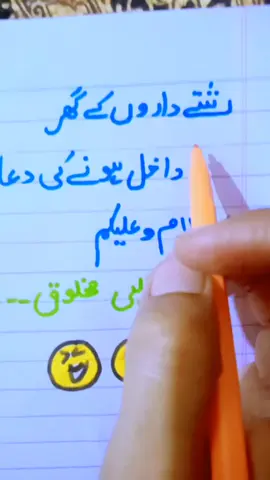 رشتے داروں کے گھر
داخل ہونے کی دعا
وعلیکم
مخلوق --